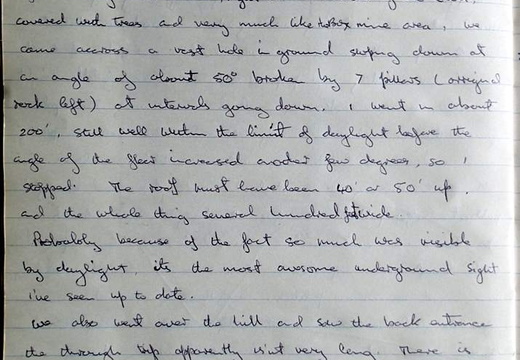 covered with trees and very much like the Box mine area, we
came accross a vast hole in ground sloping down at
an angle of about 50° broken by 7 pillers (original
rock left) at intervals going down. I went in about
200', still well within the limit of daylight before the
angle of the floor increased another few degrees, so I
stopped. The roof must have been 40' or 50' up,
and the whole thing several hundred feet wide.
Probably because of the fact so much was visible
by daylight, its the most awesome underground sight
i've seen up to date.
We also went over the hill and saw the back entrance
the through trip apparently is'nt very long. There is